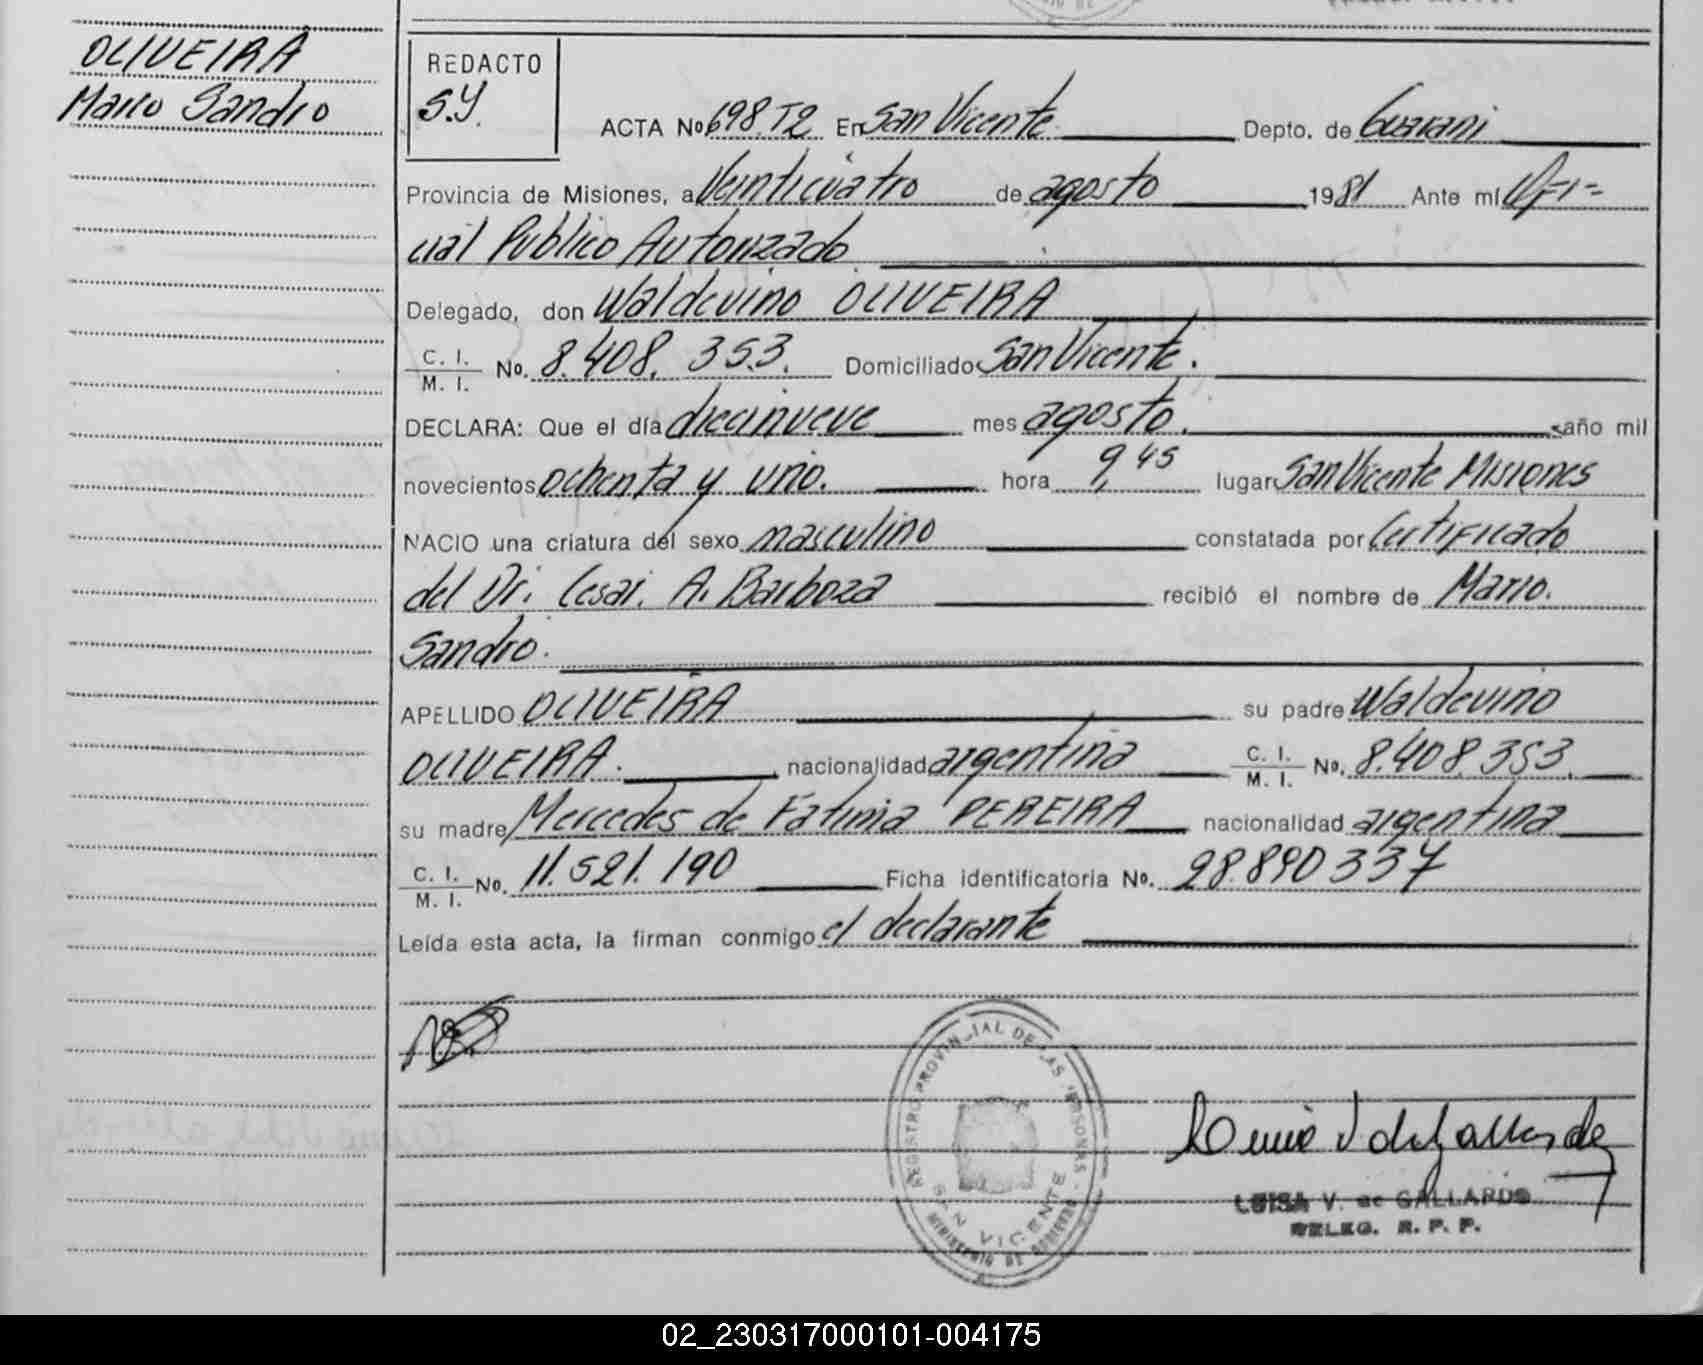 OLIVEIRA
Mario Sandro
REDACTO
S.Y.
ACTA No 698 T2 En San Vicente Depto. de Guarani
Provincia de Misiones, a Veinticuatro de agosto 1981 Ante mí Ofi-
cial Publico Autorizado
Delegado, don Waldevino OLIVEIRA
C. I. / M. I. No. 8.408.353. Domiciliado San Vicente.
DECLARA: Que el día diecinueve mes agosto. año mil
novecientos ochenta y uno. hora 9,45 lugar San Vicente Misiones
NACIO una criatura del sexo masculino constatada por Certificado
del Dr. Cesar. A. Barboza recibió el nombre de Mario.
Sandro.
APELLIDO OLIVEIRA su padre Waldevino
OLIVEIRA. nacionalidad argentina C. I. / M. I. No. 8.408.353.
su madre Mercedes de Fatima PEREIRA nacionalidad argentina
C. I. / M. I. No. 11.521.190 Ficha identificatoria No. 28.890337
Leída esta acta, la firman conmigo el declarante
REGISTRO PROVINCIAL DE LAS PERSONAS
SAN VICENTE
MINISTERIO DE GOBIERNO
LUISA V. de GALLARDO
DELEG. R. P. P.
02_230317000101-004175